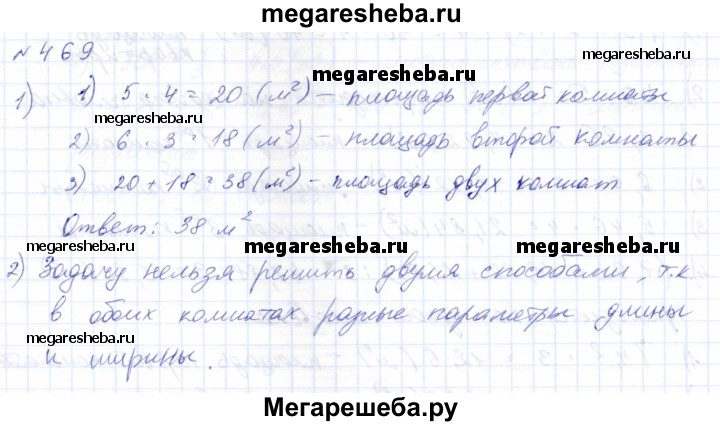 megaresheba.ru
№ 469
megaresheba.ru
1) 1) 5 · 4 = 20 (м²) – площадь первой комнаты
megaresheba.ru
2) 6 · 3 = 18 (м²) – площадь второй комнаты
3) 20 + 18 = 38 (м²) – площадь двух комнат
megaresheba.ru
Ответ: 38 м²
megaresheba.ru megaresheba.ru megaresheba.ru
2) Задачу нельзя решить двумя способами, т.к
в обоих комнатах разные параметры длины
megaresheba.ru
и ширины.
Мегарешеба.ру